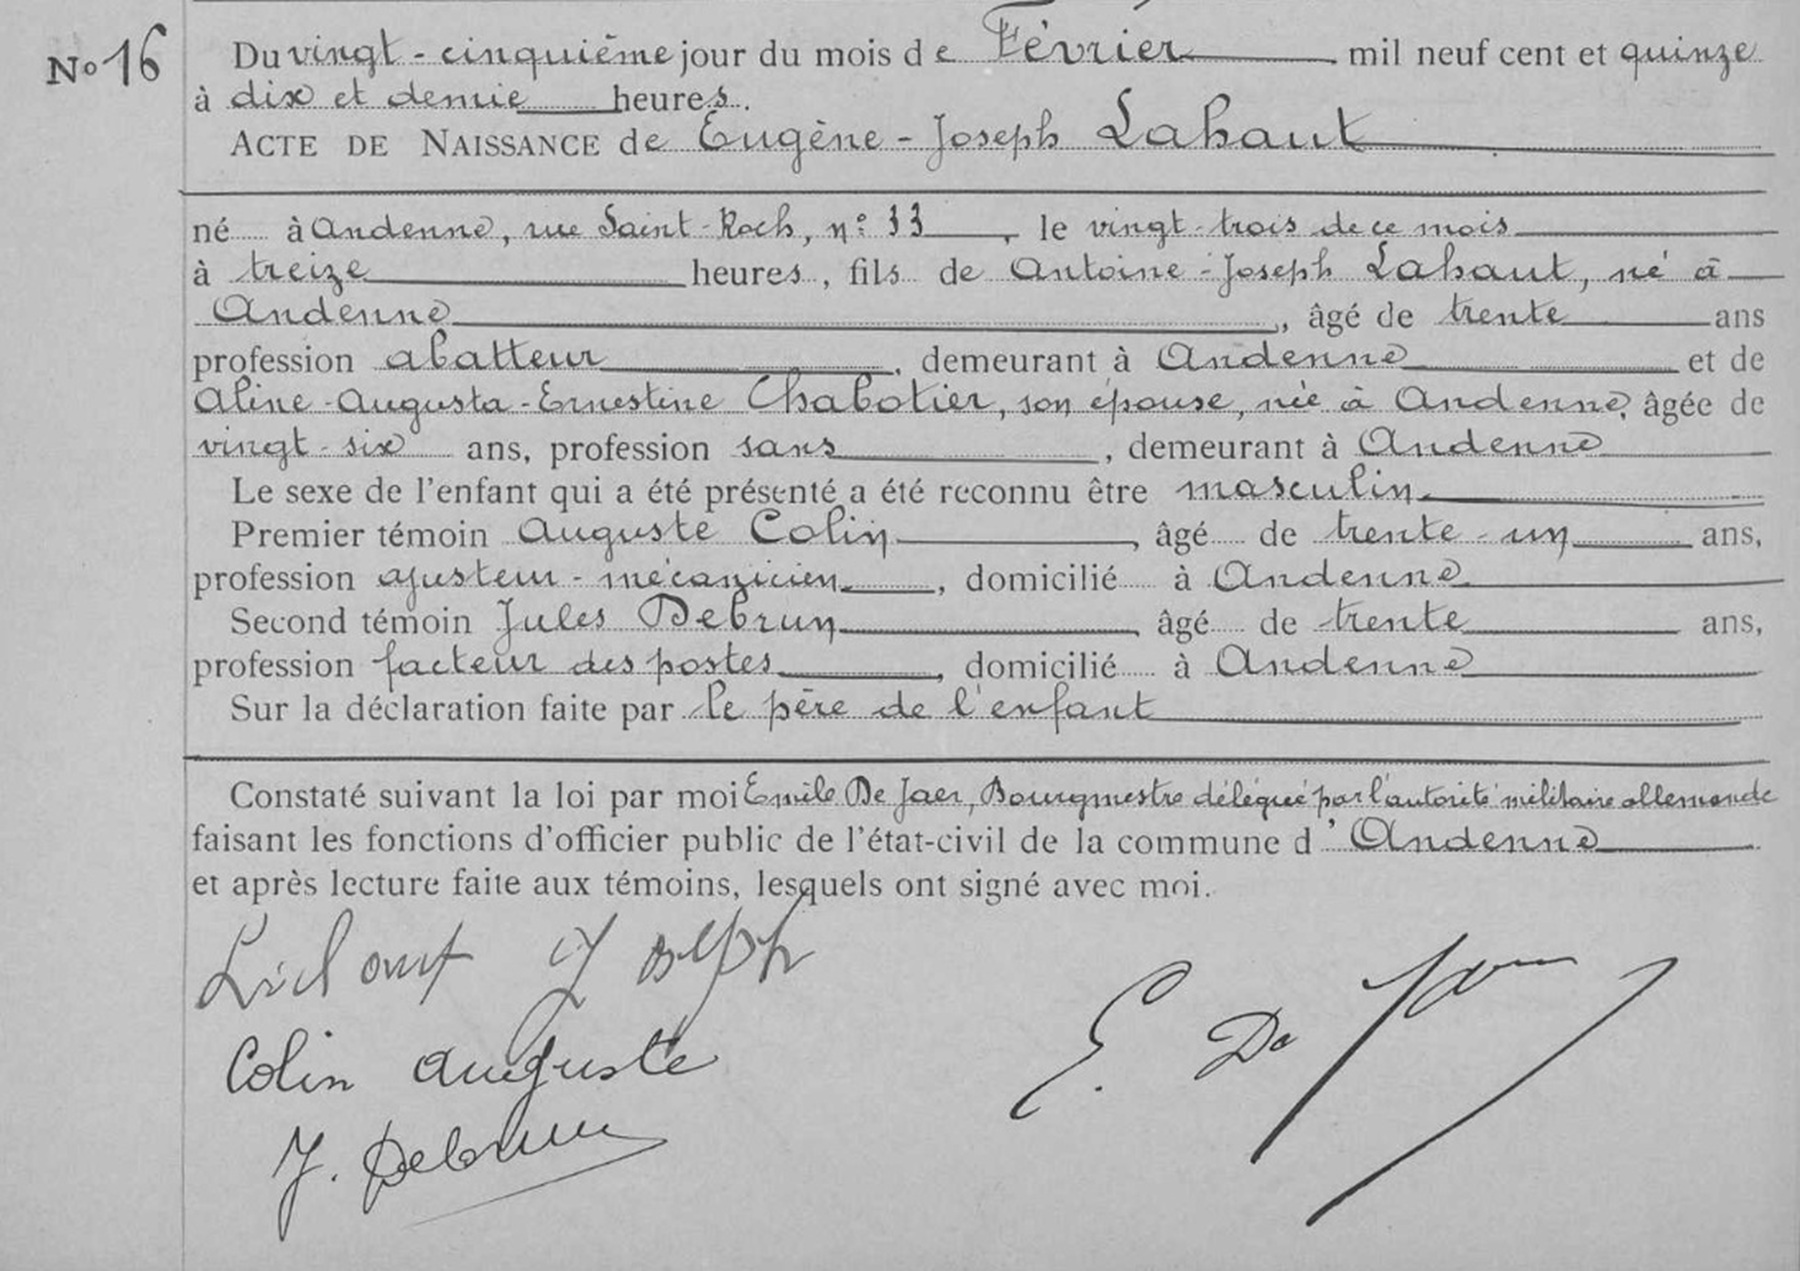 No 16
Du vingt-cinquième jour du mois de Février mil neuf cent et quinze
à dix et demie heures.
ACTE DE NAISSANCE de Eugène-Joseph Lahaut
né à Andenne, rue Saint-Roch, n° 33, le vingt-trois de ce mois
à treize heures, fils de Antoine-Joseph Lahaut, né à
Andenne, âgé de trente ans
profession abatteur, demeurant à Andenne et de
Aline-Augusta-Ernestine Chabotier, son épouse, née à Andenne, âgée de
vingt-six ans, profession sans, demeurant à Andenne
Le sexe de l'enfant qui a été présenté a été reconnu être masculin.
Premier témoin Auguste Colin, âgé de trente-un ans,
profession ajusteur-mécanicien, domicilié à Andenne
Second témoin Jules Debrun, âgé de trente ans,
profession facteur des postes, domicilié à Andenne
Sur la déclaration faite par le père de l'enfant
Constaté suivant la loi par moi Emile De Jaer, Bourgmestre délégué par l'autorité militaire allemande
faisant les fonctions d'officier public de l'état-civil de la commune d'Andenne
et après lecture faite aux témoins, lesquels ont signé avec moi.
Joseph
Colin Auguste
E. De Jaer
J. Debrun